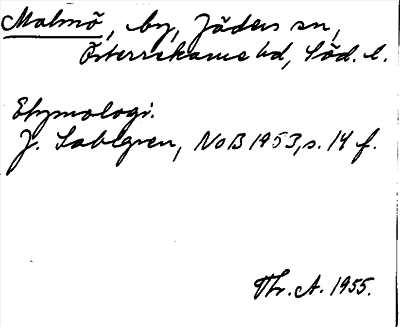 Malmö, by, Jäders sn,
Österrekarne hd, Söd. l.
Etymologi.
J. Sahlgren, NoB 1953, s. 14 f.
Thr. A. 1955.